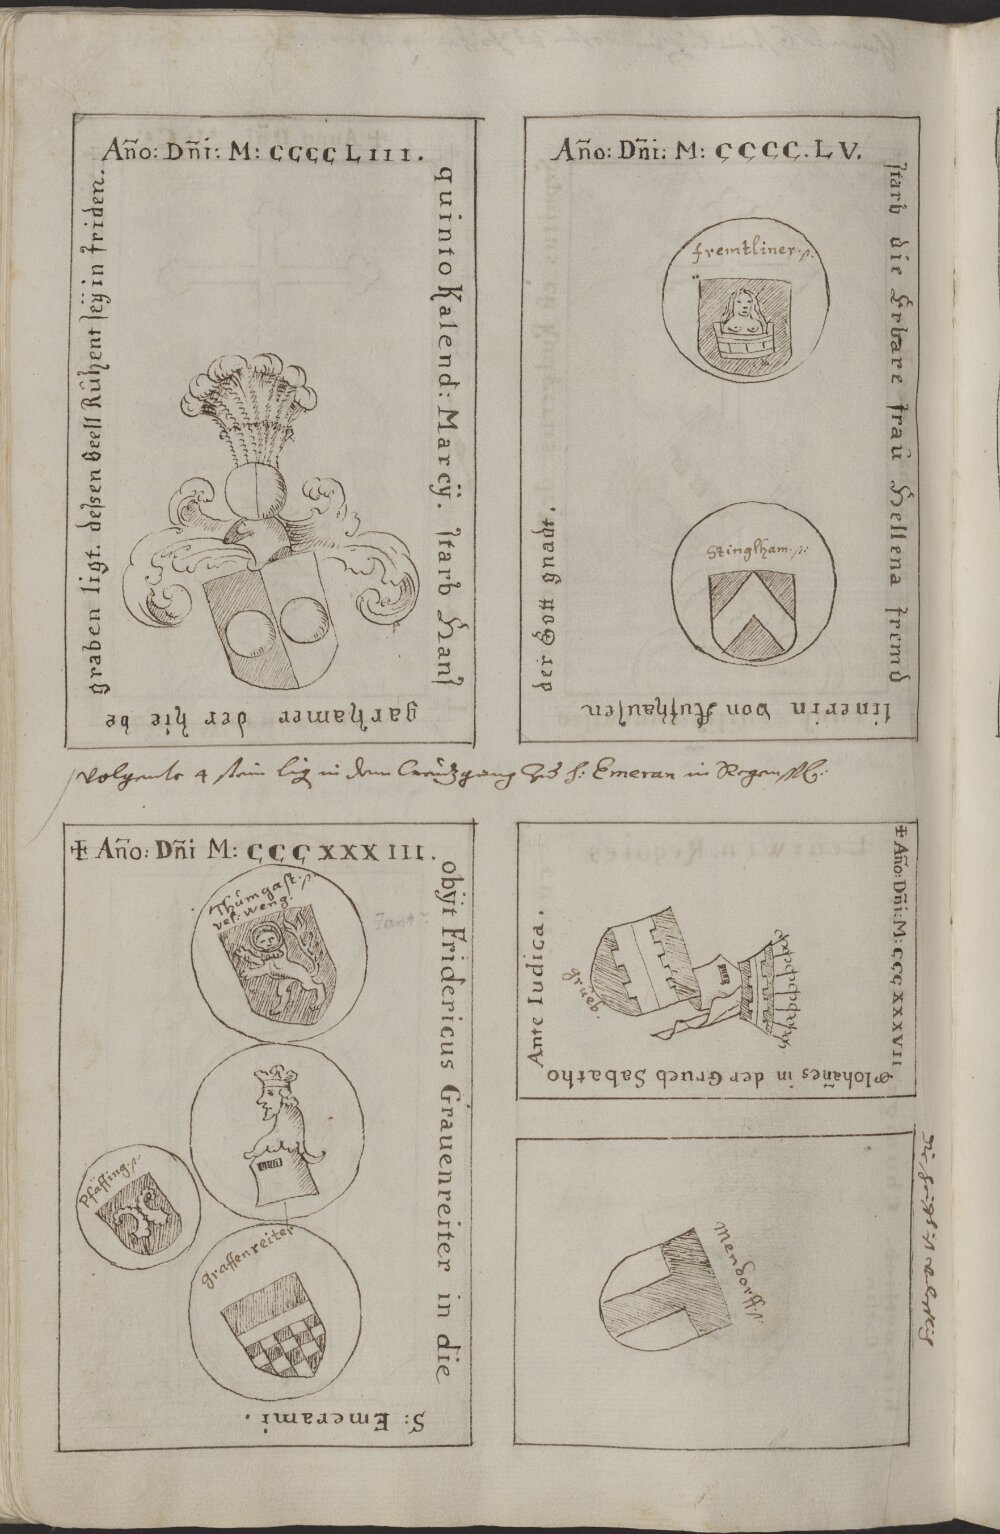 Año: Dñi: M: CCCC LIII.
quinto Kalend: Marcÿ. starb Hans
garhamer der hie be
graben ligt. dessen Seell Ruhent seÿ in friden.
Año: Dñi: M: CCCC. LV.
starb die Erbare frau Hellena fremd
linerin von Aufhausen
der Gott gnadt.
fremtliner
Stinglham
volgente 4 stein lig in dem Creützgang S: Emeran in Regenspl:
✠ Año: Dñi M: CCC XXX III.
obÿt Fridericus Grauenreiter in die
S: Emerami.
Thumgast
vel: Weng:
Pfäffing
graffenreiter
✠ Año: Dñi: M: CCC XXXVII
Iohañes in der Grueb Sabatho
Ante Iudica.
grueb.
Mendorff